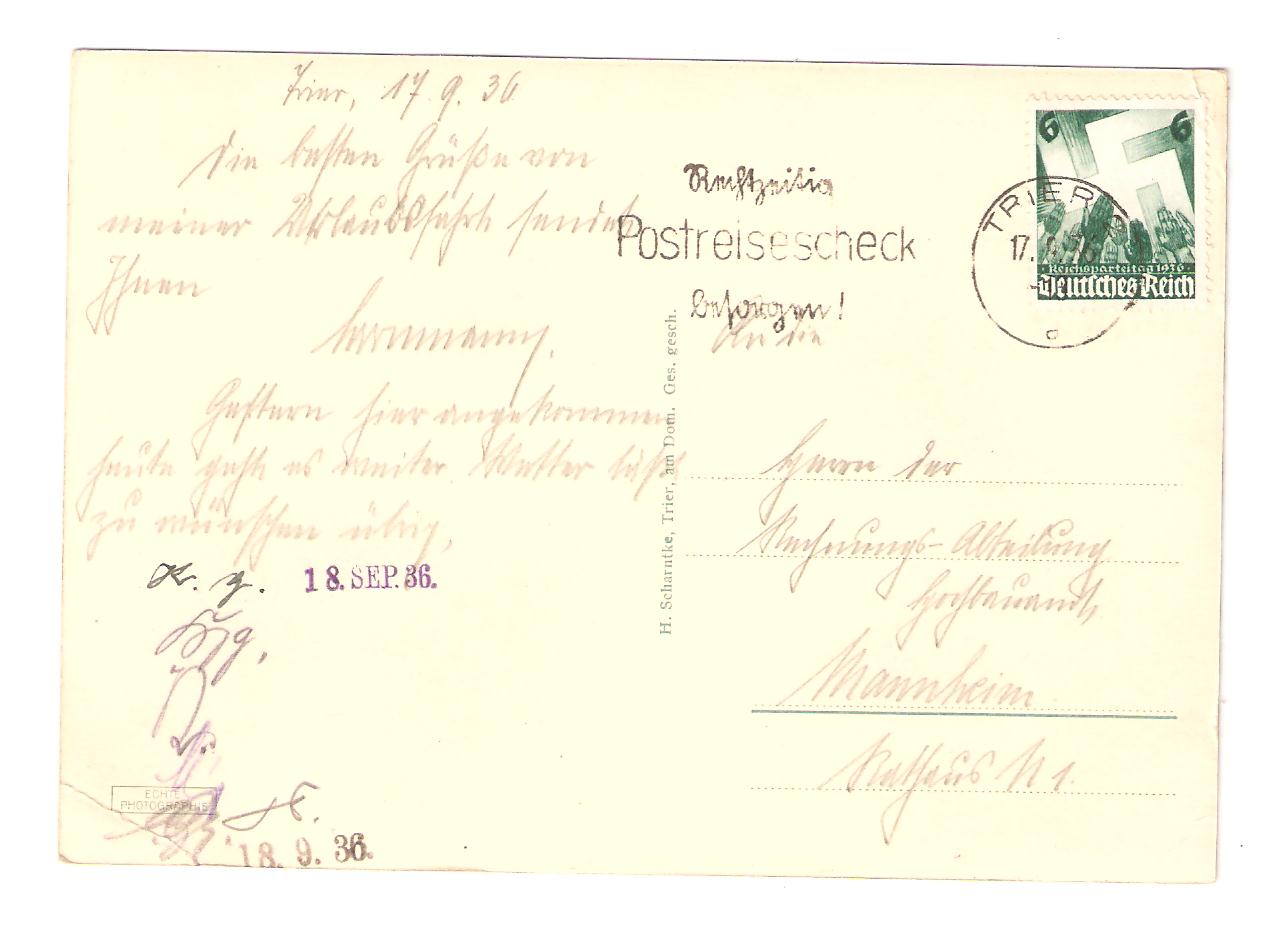 Trier, 17.9.36
Die besten Grüße von
meiner Urlaubsfahrt sendet
Ihnen
Herrmann.
Gestern hier angekommen
heute geht es weiter. Wetter läßt
zu wünschen übrig.
K. g. 18. SEP. 36.
ECHTE
PHOTOGRAPHIE
18. 9. 36.
H. Scharntke, Trier, am Dom. Ges. gesch.
Rechtzeitig
Postreisescheck
besorgen!
TRIER
17.
6 6
Reichsparteitag 1936
Deutsches Reich
An die
Herren der
Rechnungs-Abteilung
Hochbauamt
Mannheim
Rathaus N 1.